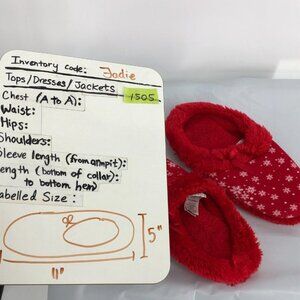 Inventory code: Jodie
Tops/Dresses/Jackets
Chest (A to A): 1505
Waist:
Hips:
Shoulders:
Sleeve length (from armpit):
Length (bottom of collar):
to bottom hem)
Labelled Size:
5"
11"